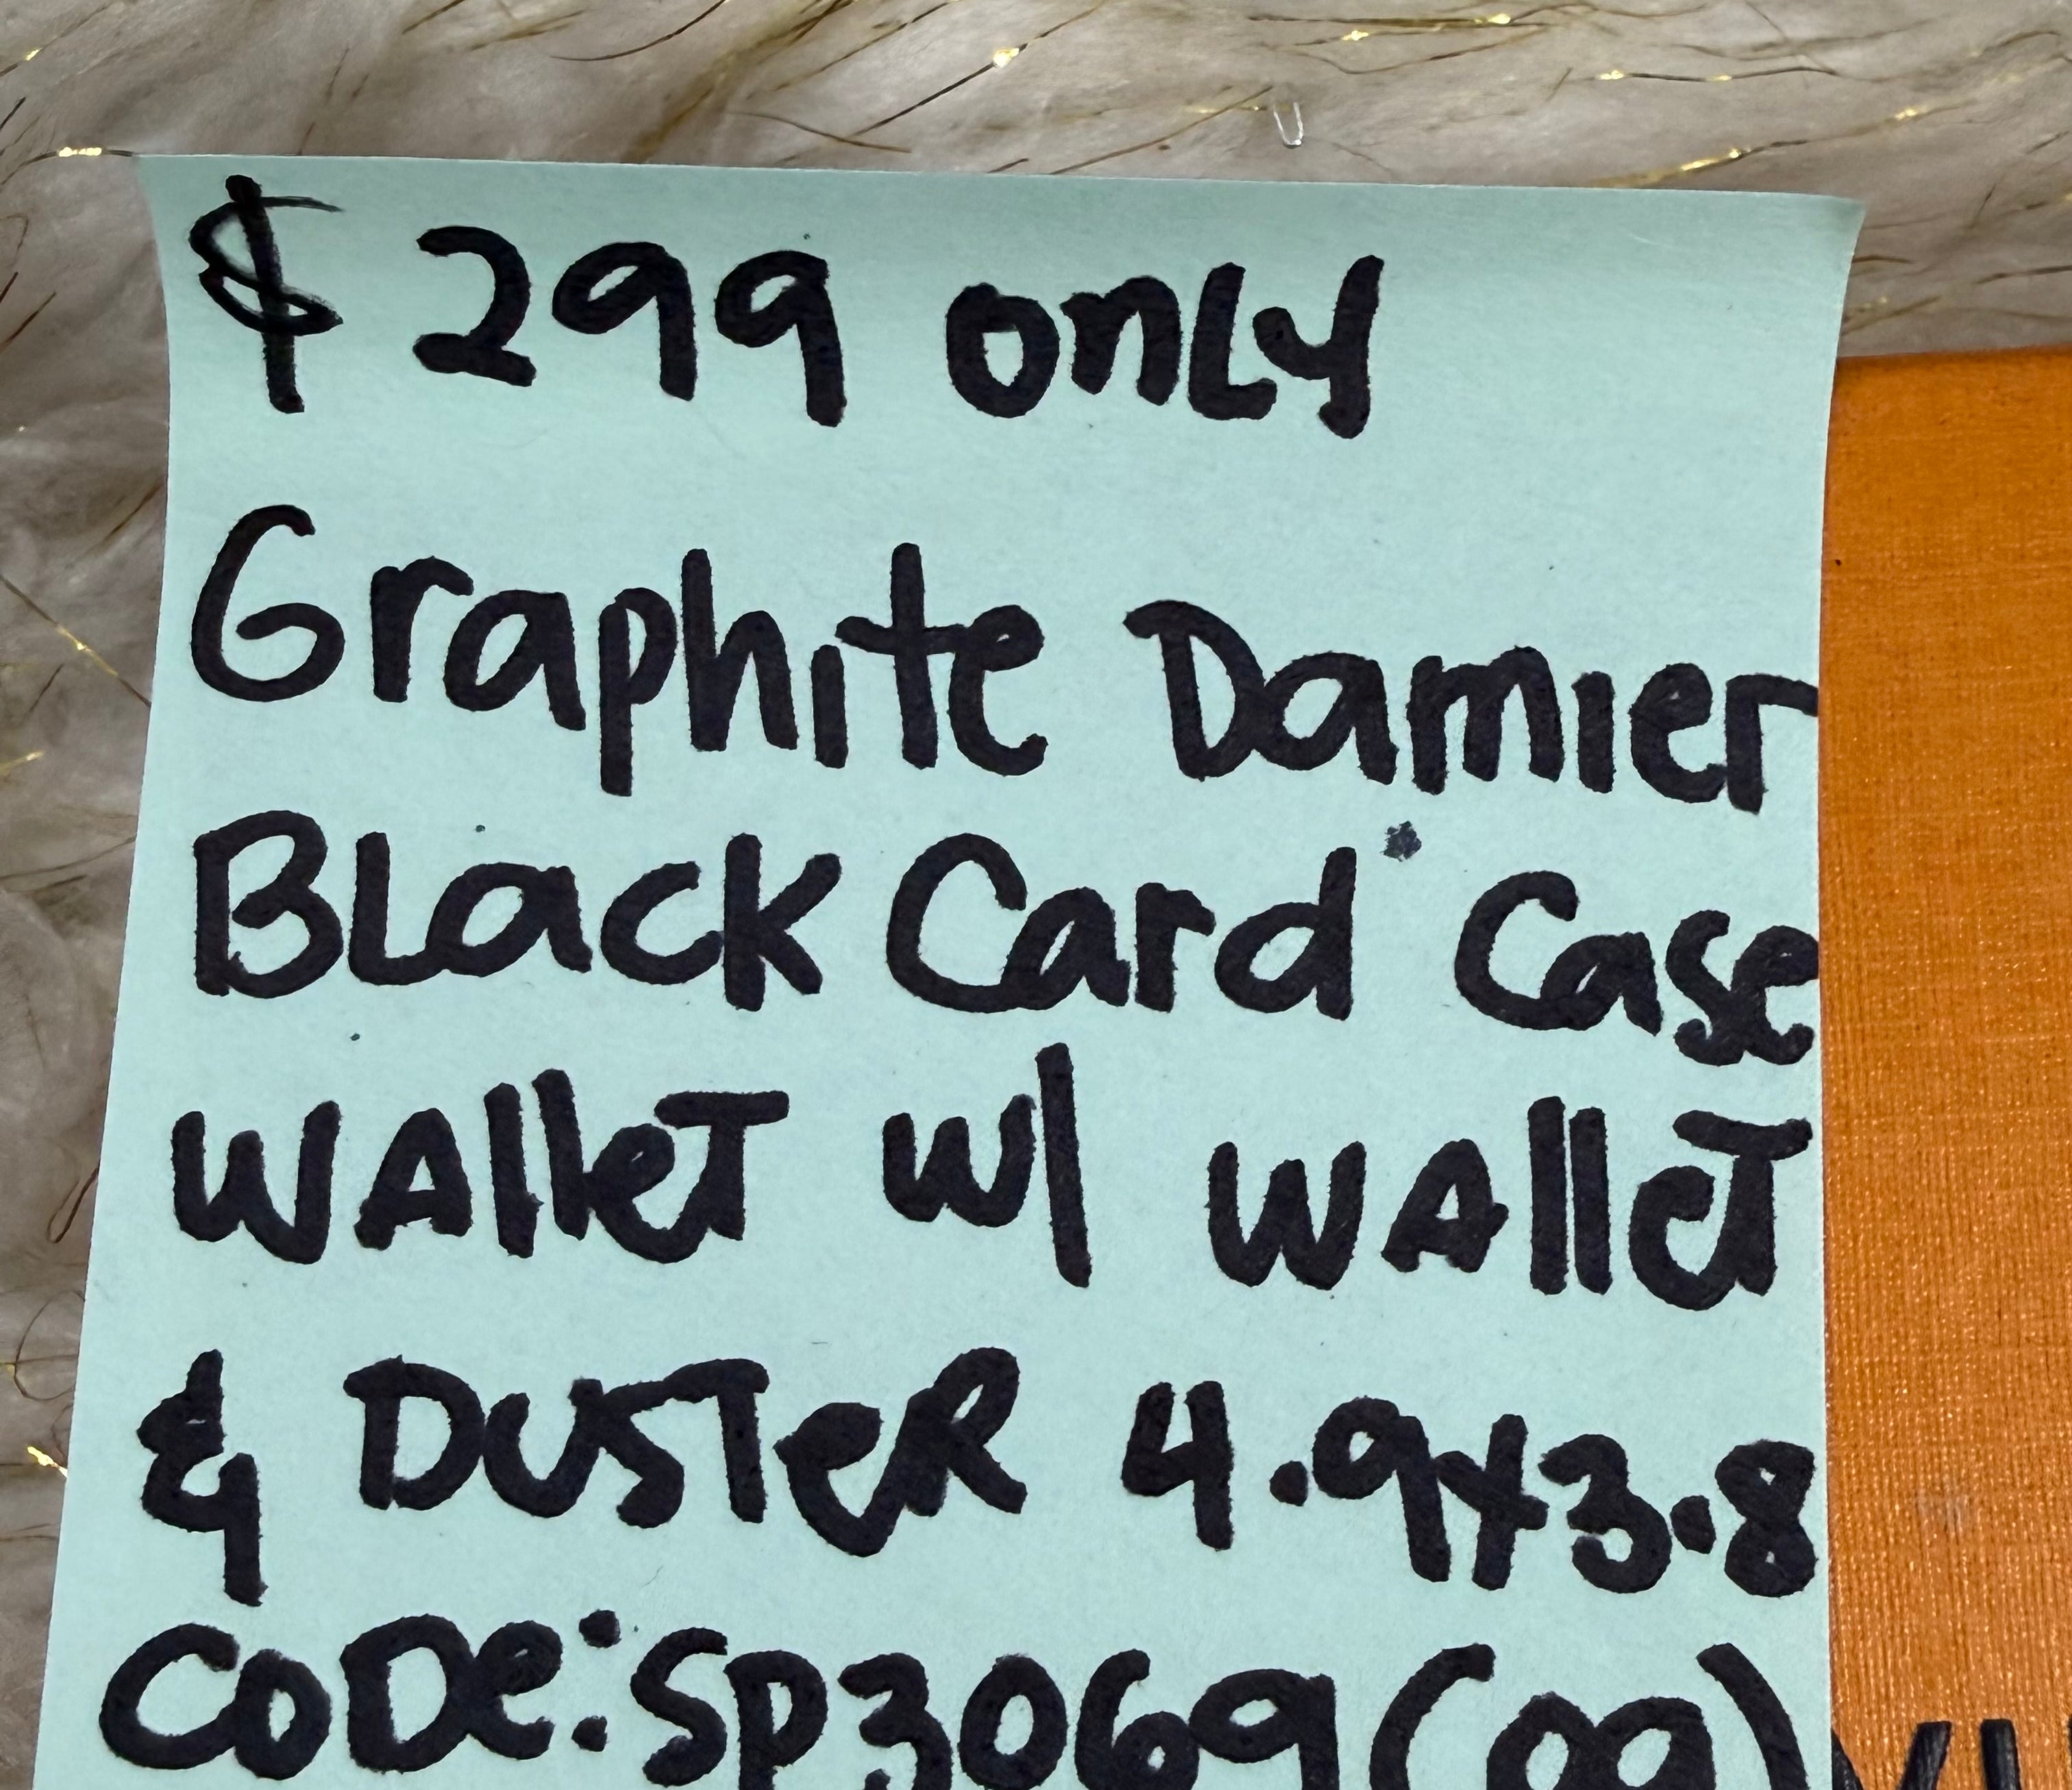 $ 299 only
Graphite Damier
Black Card Case
WAlleT w/ WAlleT
& DUSTeR 4.9x3.8
CODe: SP3069(09)